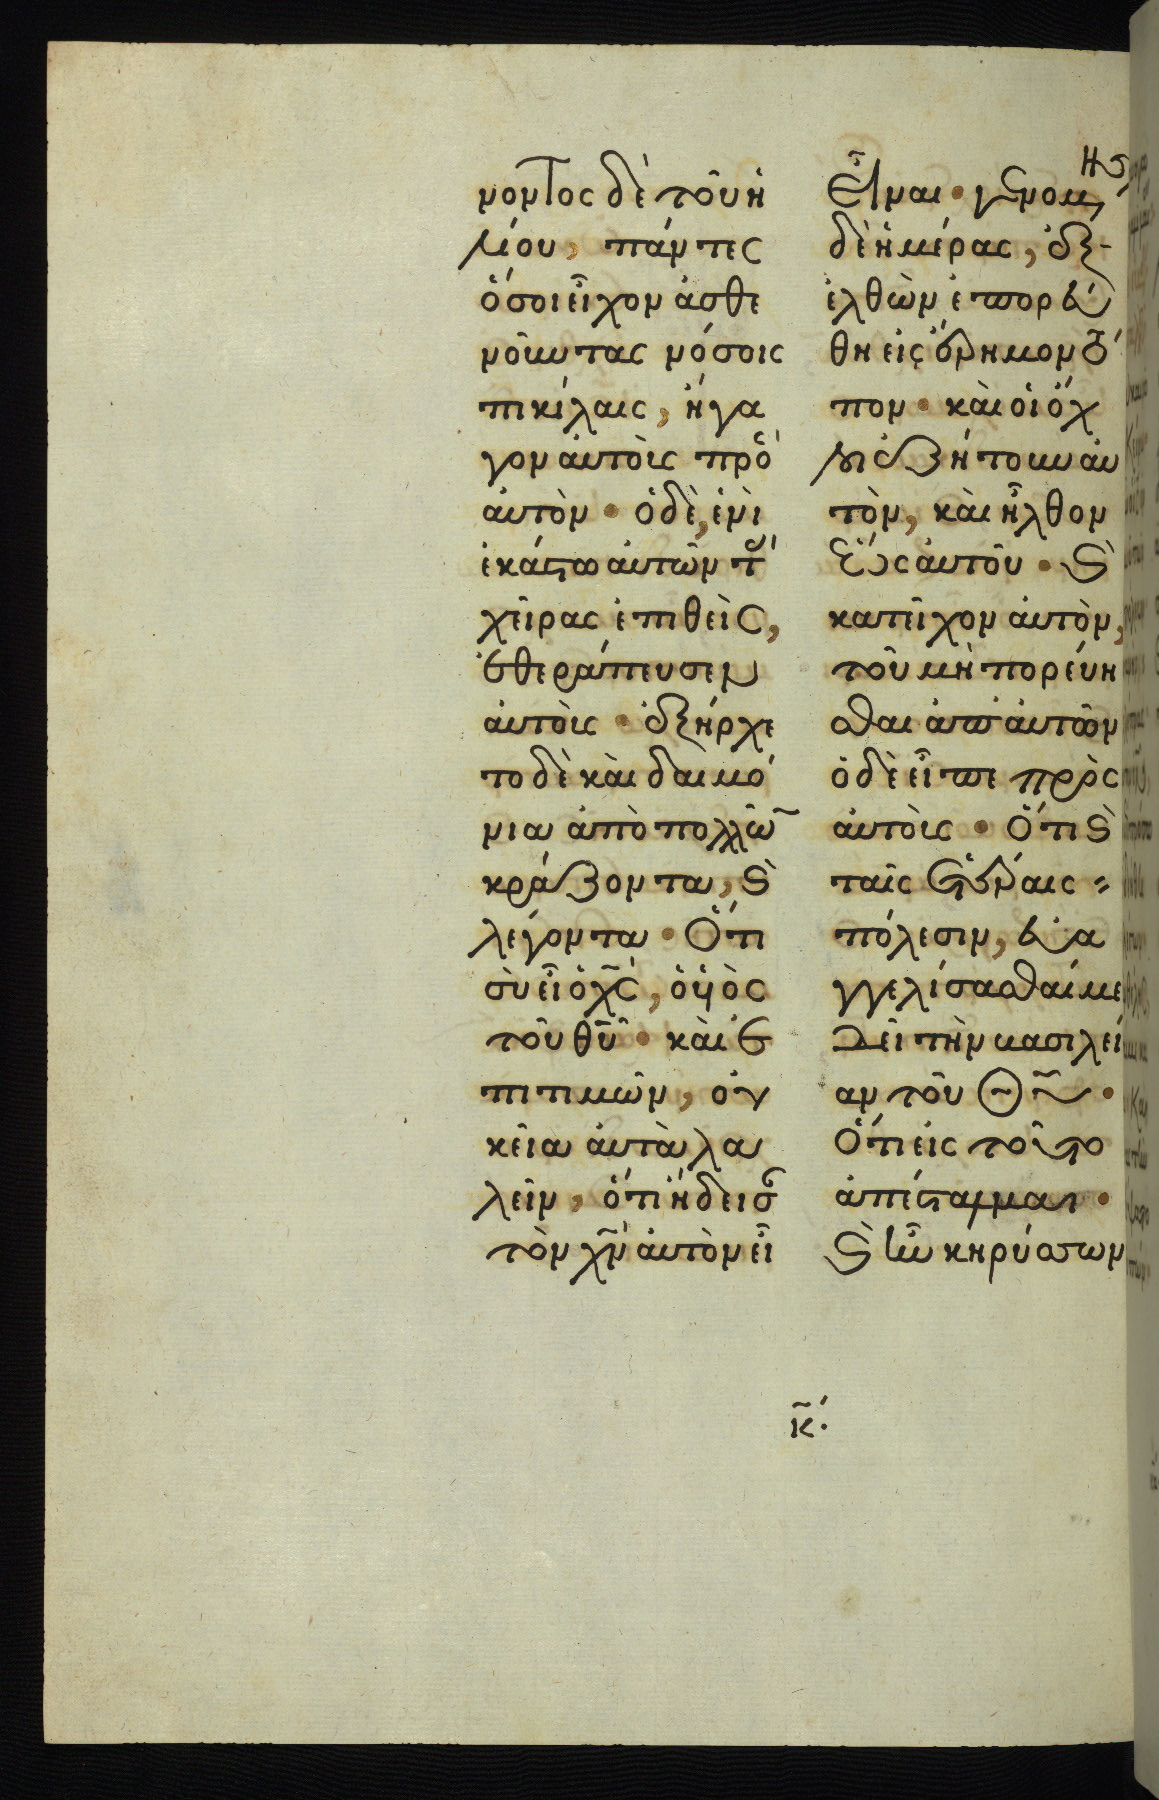 νοντος δὲ τοῦ ἡ
λίου, πάντες
ὅσοι εἶχον ἀσθε
νοῦντας νόσοις
πικίλαις, ἤγα
γον αὐτοὺς πρὸ
αὐτὸν · ὁ δὲ, ἑνὶ
ἑκάστω αὐτῶν τ
χεῖρας ἐπιθεὶς,
ἐθεράπευσεν
αὐτοὺς · ἐξήρχε
το δὲ καὶ δαιμό
νια ἀπὸ πολλῶ
κράζοντα, ϗ
λέγοντα · Ὅτι
σὺ εἶ ὁ χ̅ς̅, ὁ υἱὸς
τοῦ θ̅υ̅ · καὶ ἐ
πιτιμῶν, οὐ
κ εἴα αὐτὰ λα
λεῖν, ὅτι ἤδεισ
τὸν χ̅ν̅ αὐτὸν εἶ
Εἶναι · γενομ
δὲ ἡμέρας, ἐξ-
ελθὼν ἐπορεύ
θη εἰς ἔρημον τό
πον · καὶ οἱ ὄχ
λοι ἐζήτουν αὐ
τὸν, καὶ ἦλθον
ἕως αὐτοῦ · ϗ
κατεῖχον αὐτὸν,
τοῦ μὴ πορεύε
σθαι ἀπ' αὐτῶν
ὁ δὲ εἶπε πρὸς
αὐτοὺς · Ὅτι ϗ
ταῖς ἑτέραις =
πόλεσιν, εὐα
γγελίσασθαί με
δεῖ τὴν βασιλεί
αν τοῦ Θ̅υ̅ ·
Ὅτι εἰς τοῦτο
ἀπέσταλμαι ·
ϗ ἦν κηρύσσων
κ̅.